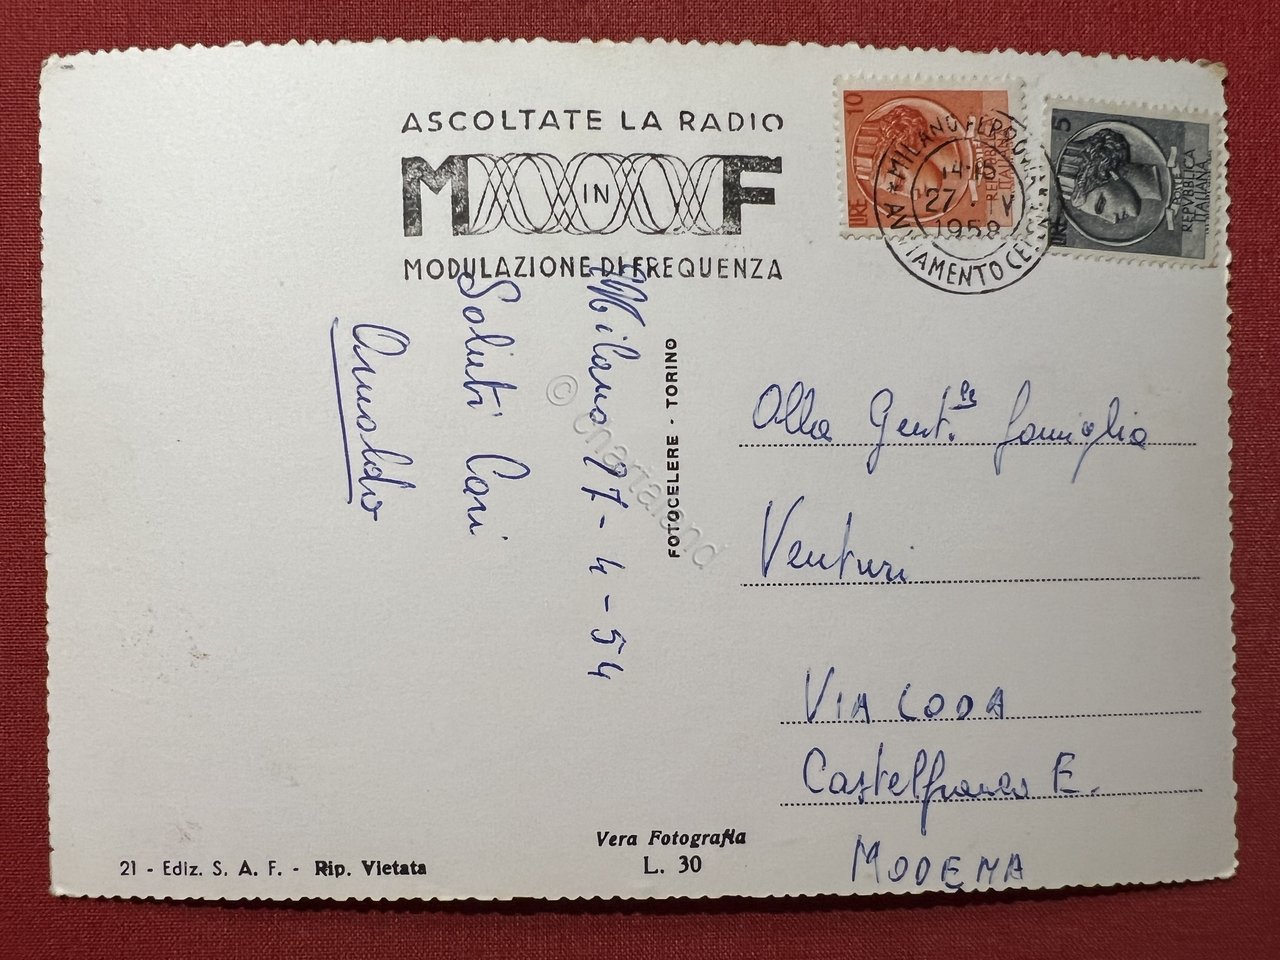 ASCOLTATE LA RADIO
M IN F
MODULAZIONE DI FREQUENZA
10
LIRE
REPUBBLICA
ITALIANA
5
LIRE
REPVBBLICA
ITALIANA
MILANO FERROVIA
14-15
27 . V
1958
Milano 27-4-54
Saluti Cari
Arnaldo
FOTOCELERE - TORINO
© Chartaland
Alla Gent.le famiglia
Venturi
VIA LODA
Castelfranco E.
MODENA
Vera Fotografia
L. 30
21 - Ediz. S. A. F. - Rip. Vietata